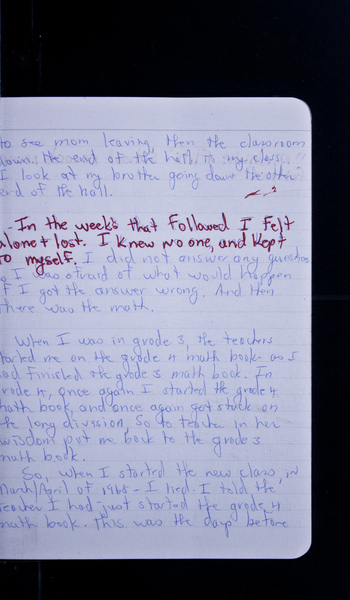 to see mom leaving, then the classroom
down the end of the hall, is my class.
I look at my brother going down the other
end of the hall.
- In the weeks that followed I felt
alone + lost. I knew no one, and kept
to myself. I did not answer any questions
I was afraid of what would happen
if I got the answer wrong. And then
there was the math.
When I was in grade 3, the teachers
started me on the grade 4 math book - as I
had finished the grade 3 math book. In
grade 4, once again I started the grade 4
math book, and once again got stuck on
the long division, so to teacher in her
wisdom put me back to the grade 3
math book.
So, when I started the new class, in
March/April of 1968 - I lied. I told the
teacher I had just started the grade 4
math book. This was the days before